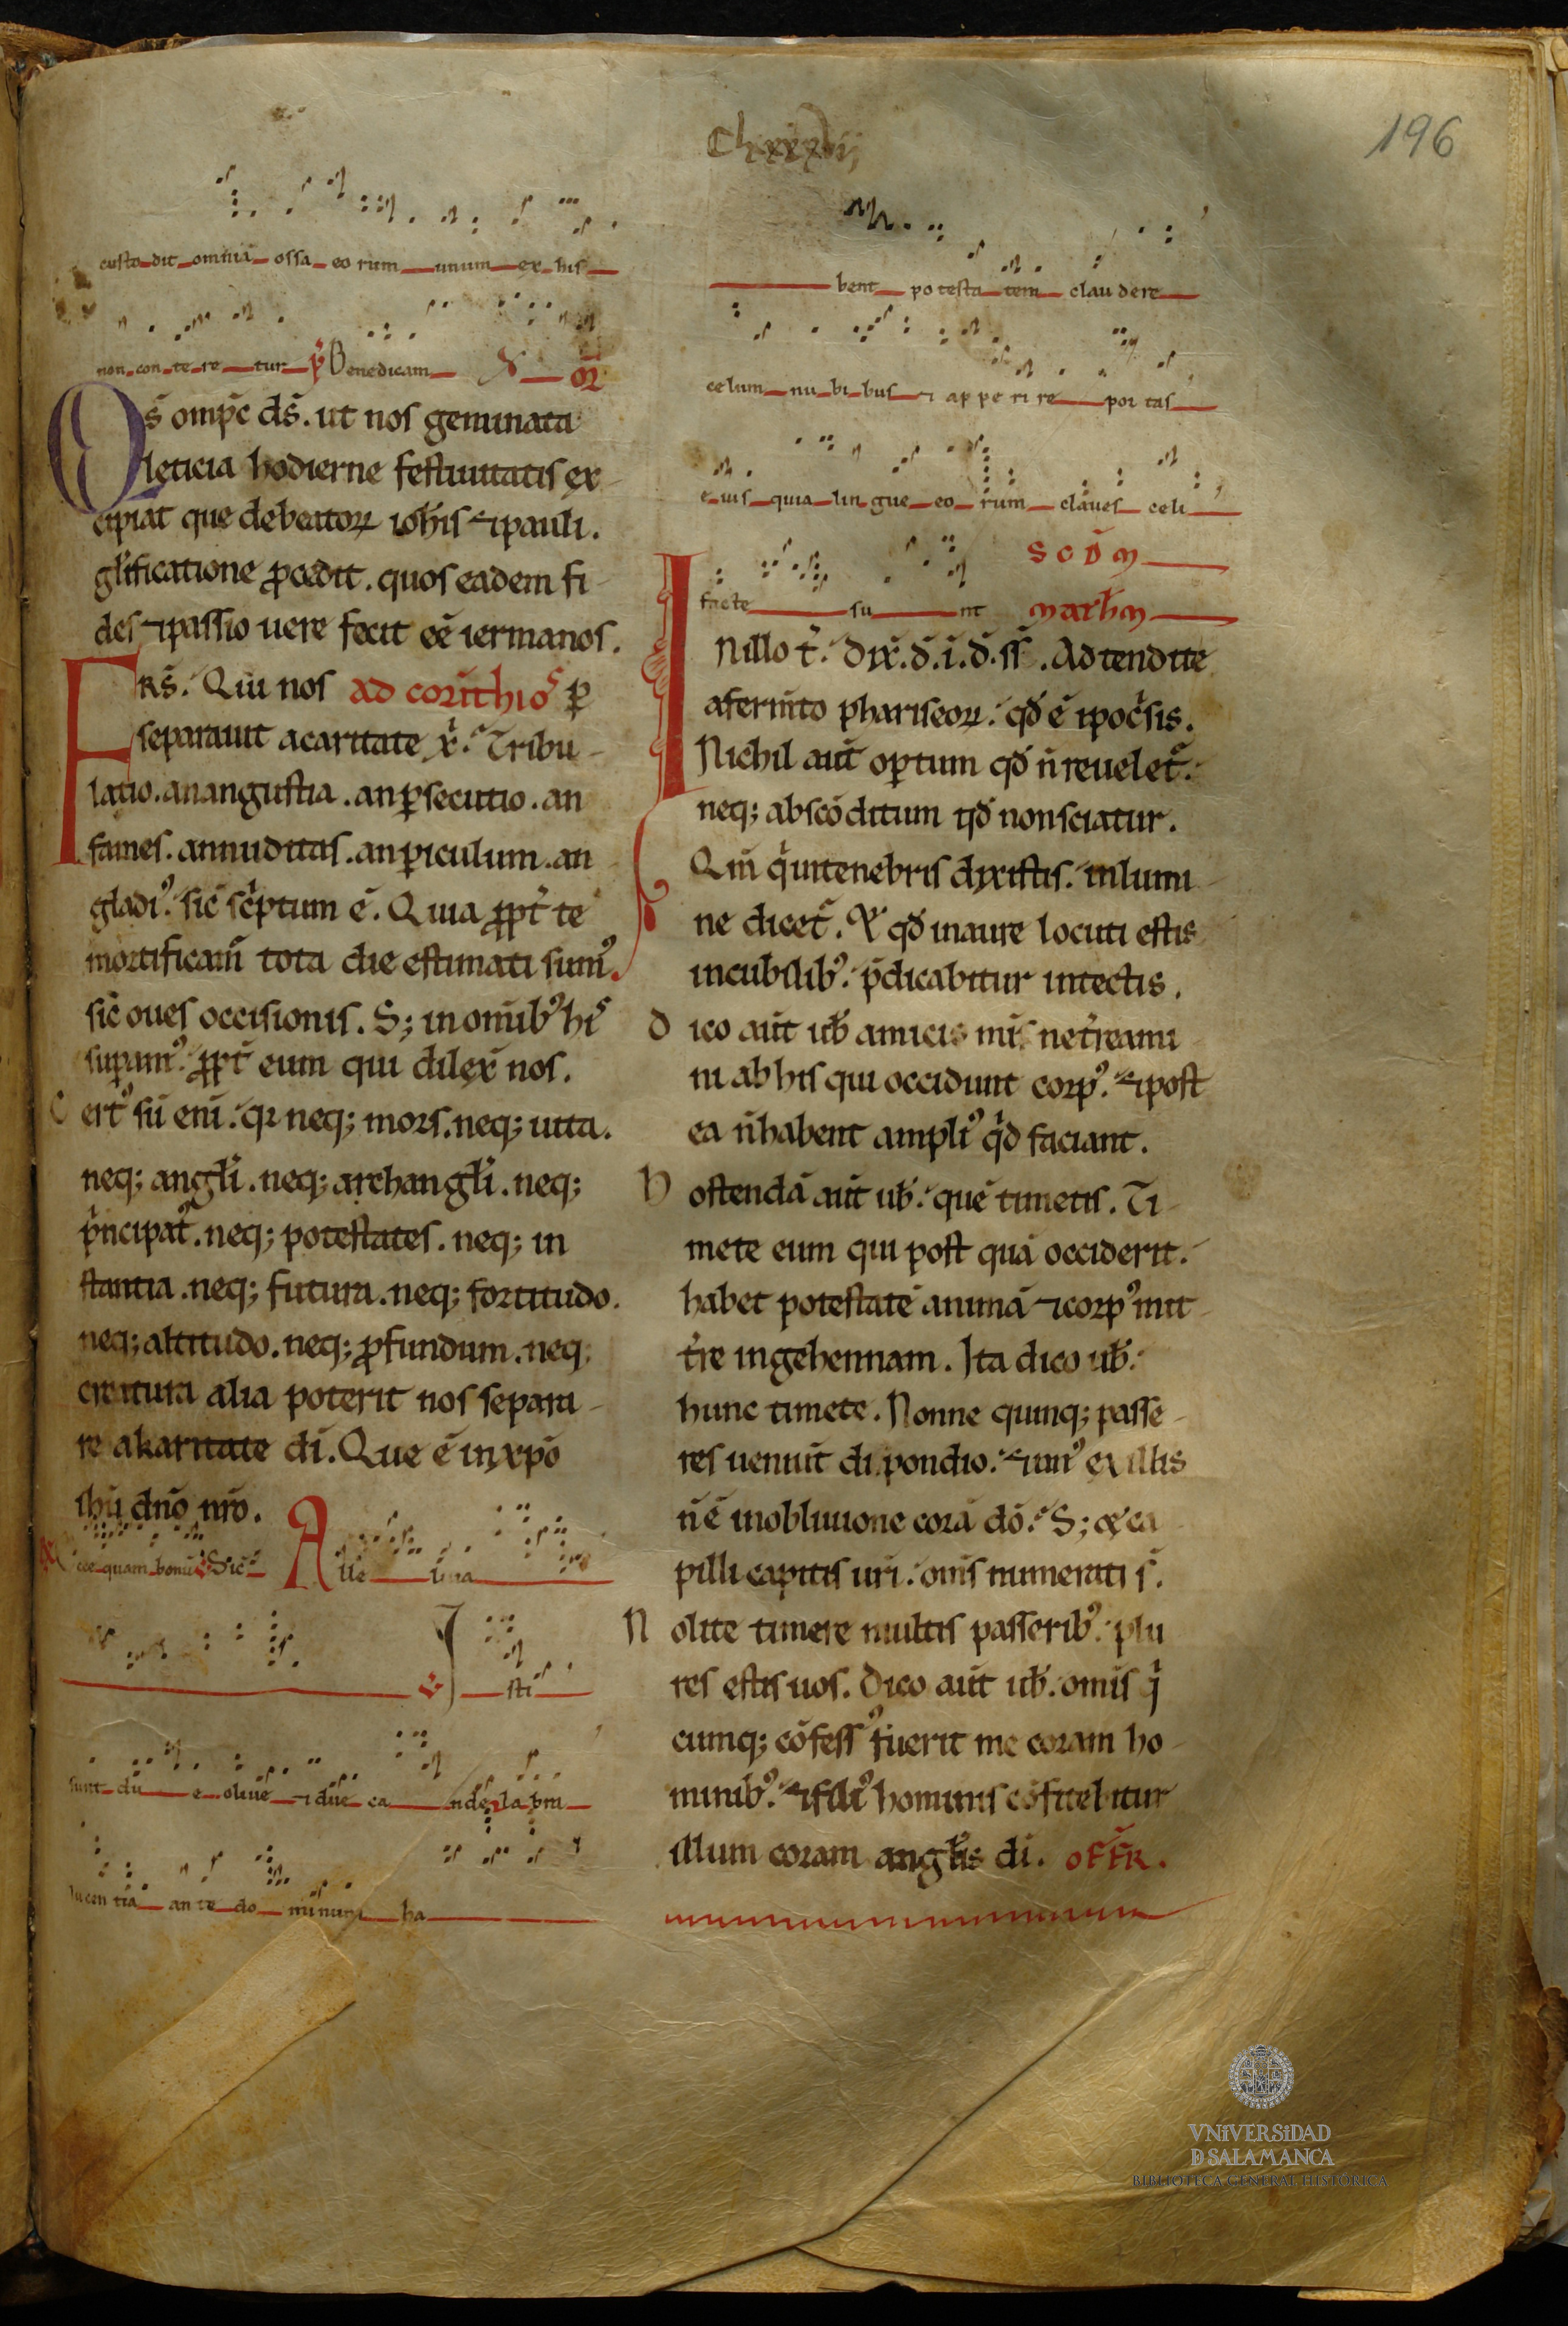 Clxxxvij
196
custo dit omnia ossa eo rum unum ex his
non con te re tur p̄ Benedicam or̄
Qs̄ omp̄c ds̄. ut nos geminata
leticia hodierne festiuitatis ex
cipiat que debeator iohis ⁊ pauli.
glificatione ꝓcedit. quos eadem fi
des ⁊ passio uere fecit eē iermanos.
FRS̄. Qui nos ad corinthios ꝑ
separauit acaritate x̄. Tribu
latio. an angustia. an ꝑsecutio. an
fames. an nuditas. an ꝑiculum. an
gladiꝰ. sic̄ scriptum ē. Quia ꝓpt̄ te
mortificam̄ tota die estimati sumꝰ.
sic̄ oues occisionis. S; in omibꝰ his
suꝑamꝰ. ꝓpt̄ eum qui dilex̄ nos.
Certꝰ sū eni. qr neq; mors. neq; uita.
neq; angli. neq; archangli. neq;
pⁱncipatꝰ. neq; potestates. neq; in
stantia. neq; futura. neq; fortitudo.
neq; altitudo. neq; ꝓfundum. neq;
creatura alia poterit nos separa
re a karitate di. Que ē in xpō
ihū dnō nrō.
Ecce quam bonū ℣ Sic̄ Alle luia
℣ I sti
sunt du e oliue ⁊ due ca ndelabra
lucen tia an te do minum ha
bent po testa tem clau dere
celum nu bi bus ⁊ ap pe ri re por tas
e ius quia lin gue eo rum claues celi
facte su nt SCDM
MARHM
INillo t̄. dix̄. d̄. i. d̄. ss̄. Adtendite
a fermto phariseor. qd̄ ē ipocsis.
Nichil aut̄ oꝑtum qd̄ n̄ reueletr.
neq; abscōditum qd̄ non sciatur.
Qm̄ qⁱ in tenebris dixistis. in lumi
ne dicetr. Et qd̄ in aure locuti estis
in cubilibꝰ. p̄dicabitur in tectis.
Dico aut̄ ub̄ amicis mis ne treami
ni ab his qui occidunt corpꝰ. ⁊ post
ea n̄ habent ampliꝰ qⁱd faciant.
Ostendā aut̄ ub̄. quē timetis. Ti
mete eum qui post quā occiderit.
habet potestatē animā ⁊ corpꝰ mit
tre in gehennam. Ita dico ub̄.
hunc timete. Nonne quinq; passe
res ueniut̄ dipondio. ⁊ unꝰ ex illis
n̄ ē in obliuione corā dō. S; et ca
pilli capitis uri. omīs numerati s̄.
Nolite timere multis passeribꝰ. plu
res estis uos. Dico aut̄ ub̄. omīs qⁱ
cumq; cōfessꝰ fuerit me coram ho
minibꝰ. ⁊ filiꝰ hominis cōfitebitur
illum coram anglis di. OFFR.
VNiVERSiDAD
D SALAMANCA
BIBLIOTECA GENERAL HISTÓRICA